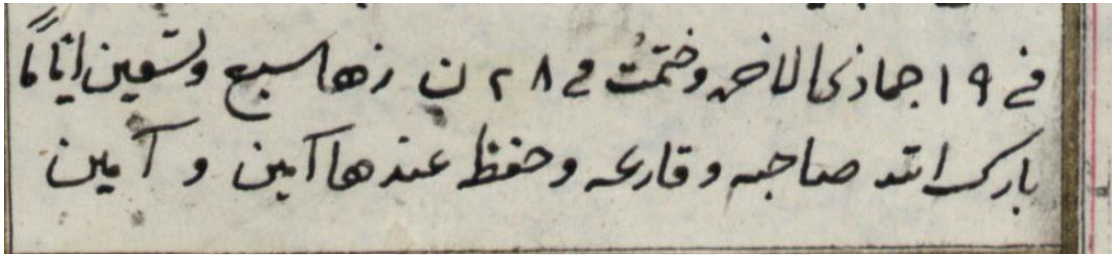 في ١٩ جماذى الاخر وختمت في ٢٨ ن زهاسبع وتسعين اياما
بارك الله صاحبه وقارئه وحفظ عندها آمين و آمين